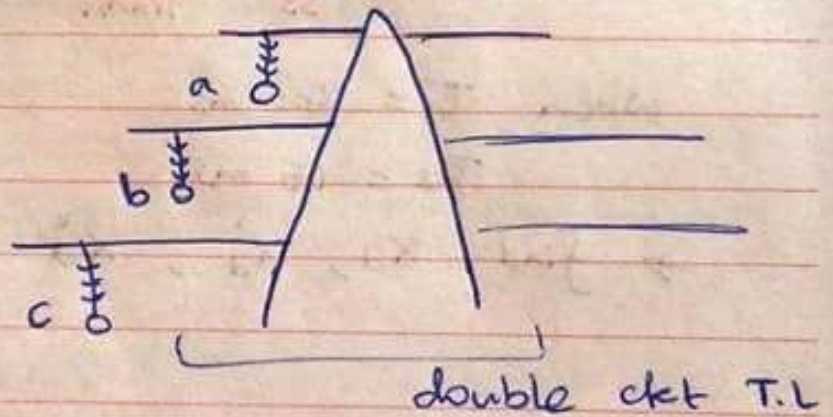 a
b
c
double ckt T.L